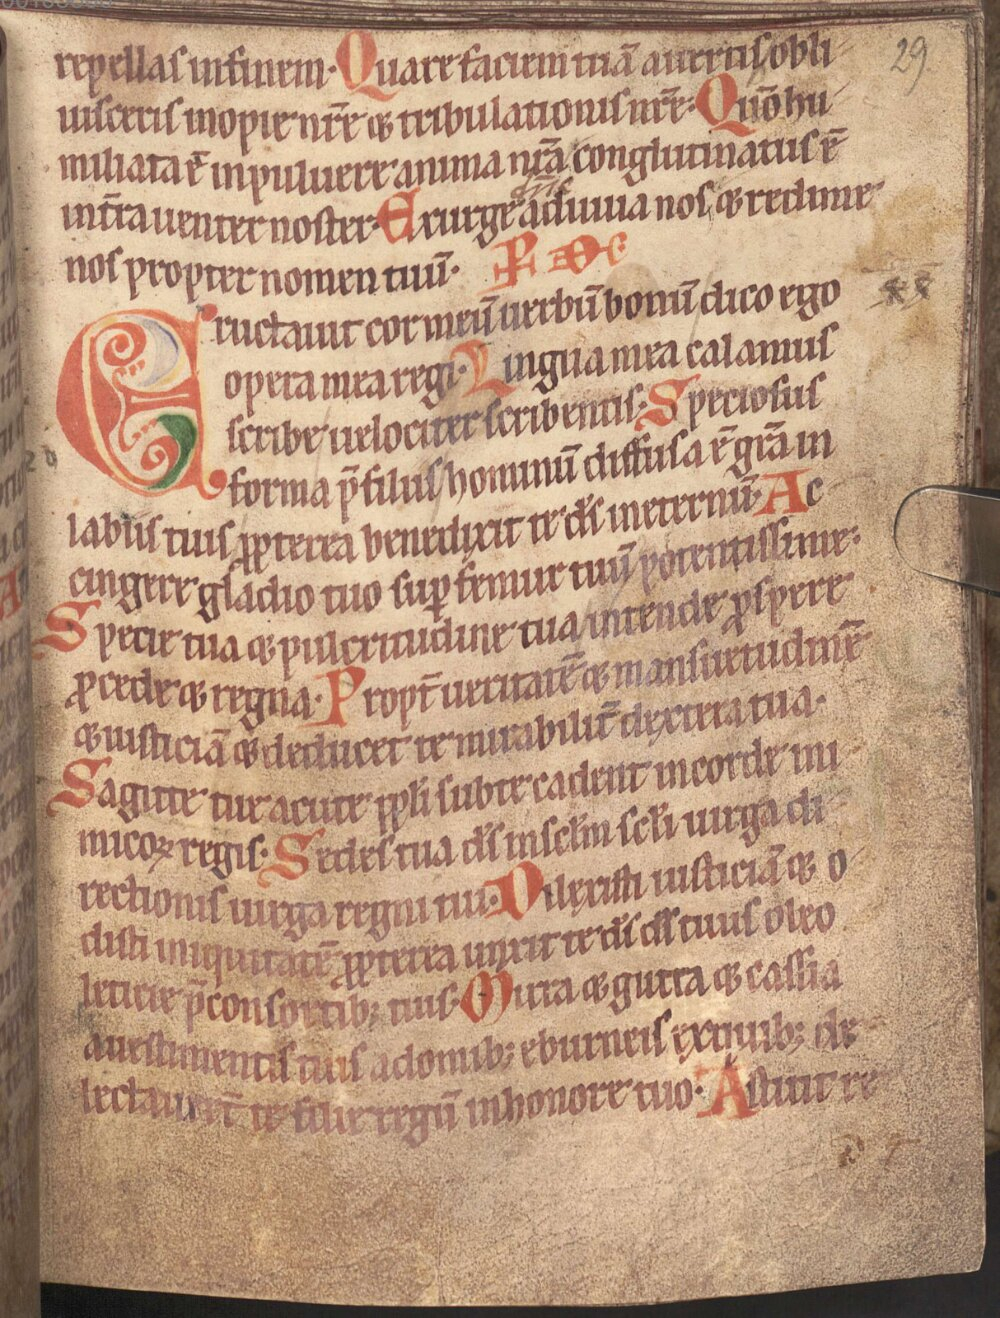 29.
repellas infinem. Quare faciem tuā auertis obli
uisceris inopie nr̄e & tribulationis nr̄e. Qūo hu
miliata ē inpuluere anima nr̄a conglutinatus ē
dn̄e
interra uenter noster. Exurge adiuua nos & redime
nos propter nomen tuū.
Eructauit cor meū uerbū bonū dico ego
opera mea regi. Lingua mea calamus
scribe uelociter scribentis; Speciosus
forma p̄ filiis hominū diffusa ē gr̄a in
labiis tuis ꝓpterea benedixit te ds̄ ineternū. Ac
cingere gladio tuo suꝑ femur tuū potentissime.
Specie tua & pulcritudine tua intende ꝓspere
ꝓcede & regna. Propt̄ ueritatē & mansuetudinē
& iusticiā & deducet te mirabilit̄ dextera tua.
Sagitte tue acute ppl̄i subte cadent incorde ini
micoꝝ regis. Sedes tua ds̄ insclm̄ scl̄i uirga di
rectionis uirga regni tui. Dilexisti iusticiā & o
disti iniquitatē ꝓpterea unxit te ds̄ ds̄ tuus oleo
leticie p̄consortib; tuis. Mirra & gutta & cassia
auestimentis tuis adomib; eburneis extuib; de
lectauert̄ te filie regū inhonore tuo. Astitit re